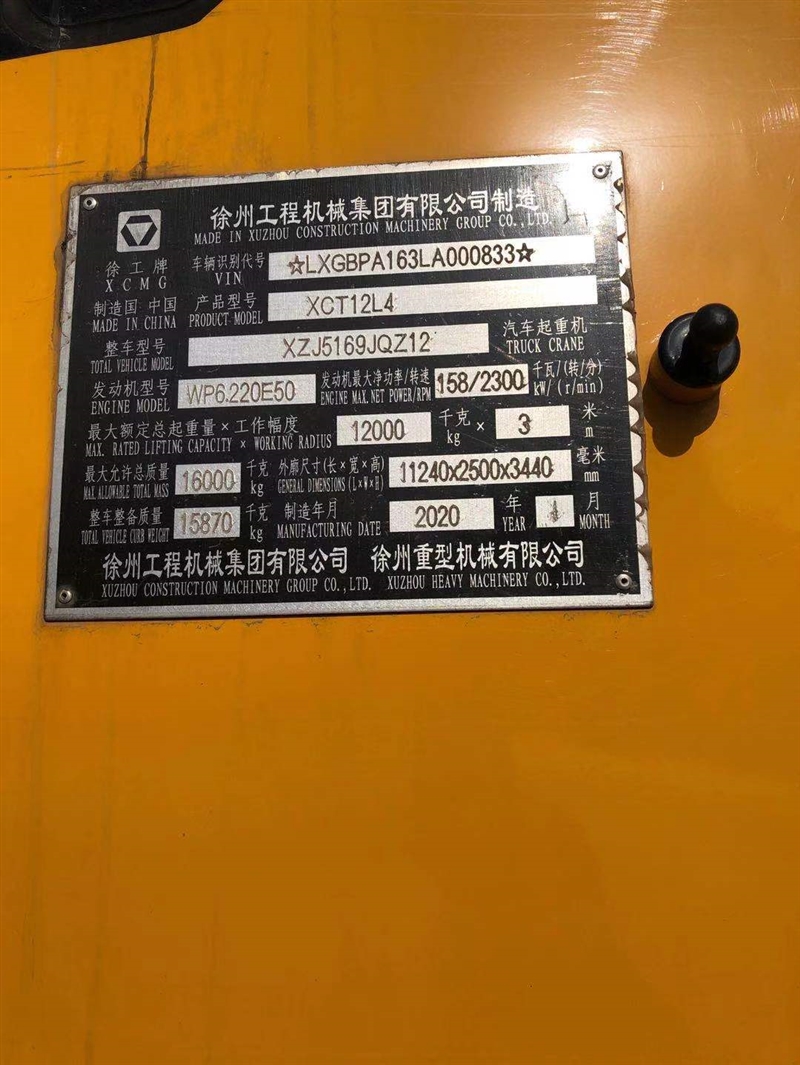 徐州工程机械集团有限公司制造
MADE IN XUZHOU CONSTRUCTION MACHINERY GROUP CO., LTD.
徐工牌
XCMG
车辆识别代号 ☆LXGBPA163LA000833☆
VIN
制造国 中国 产品型号 XCT12L4
MADE IN CHINA PRODUCT MODEL
整车型号 XZJ5169JQZ12 汽车起重机
TOTAL VEHICLE MODEL TRUCK CRANE
发动机型号 WP6.220E50 发动机最大净功率/转速 158/2300 千瓦/(转/分)
ENGINE MODEL ENGINE MAX. NET POWER/RPM kW/(r/min)
最大额定总起重量×工作幅度 12000 千克 × 3 米
MAX. RATED LIFTING CAPACITY × WORKING RADIUS kg m
最大允许总质量 16000 千克 外廓尺寸(长×宽×高) 11240x2500x3440 毫米
MAX. ALLOWABLE TOTAL MASS kg GENERAL DIMENSIONS (L×W×H) mm
整车整备质量 15870 千克 制造年月 2020 年 月
TOTAL VEHICLE CURB WEIGHT kg MANUFACTURING DATE YEAR MONTH
徐州工程机械集团有限公司 徐州重型机械有限公司
XUZHOU CONSTRUCTION MACHINERY GROUP CO., LTD. XUZHOU HEAVY MACHINERY CO., LTD.